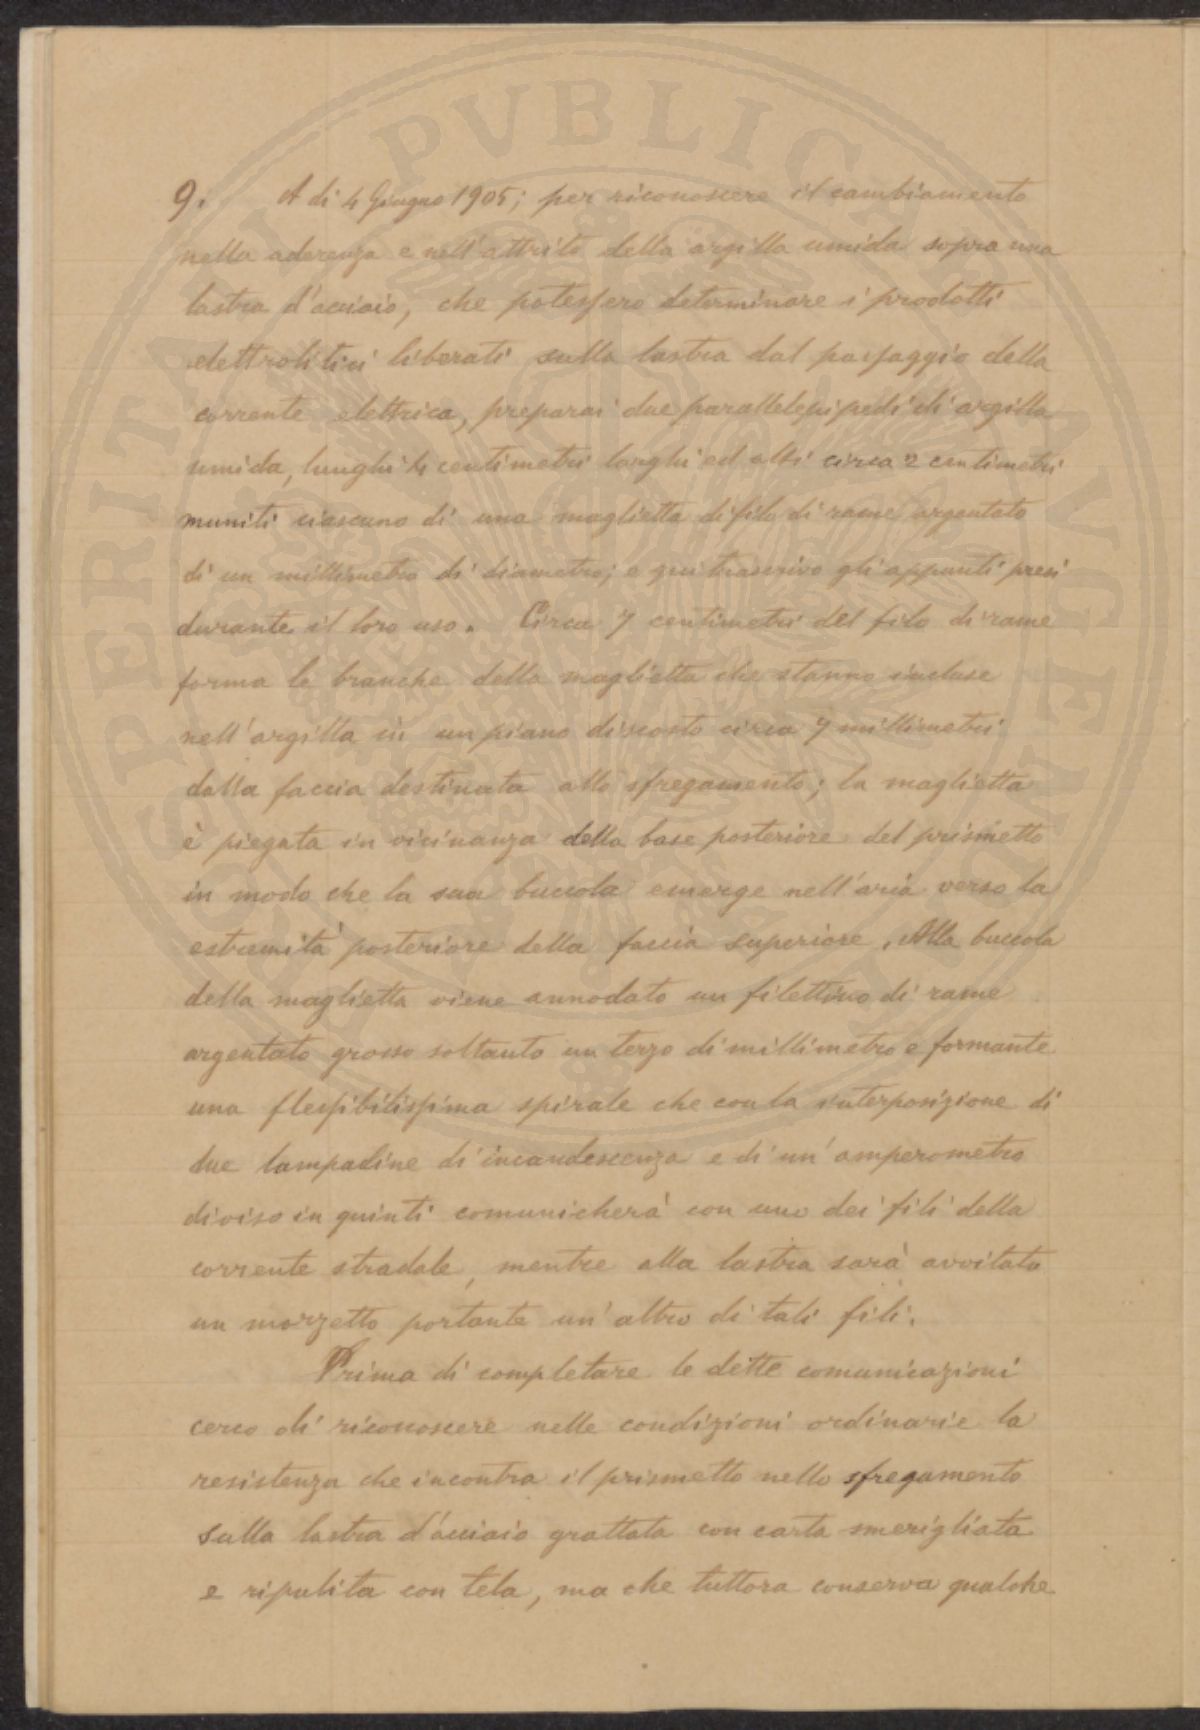 9. A di 4 Giugno 1905; per riconoscere il cambiamento
nella aderenza e nell'attrito della argilla umida sopra una
lastra d'acciaio, che potessero determinare i prodotti
elettrolitici liberati sulla lastra dal passaggio della
corrente elettrica, preparai due parallelepipedi di argilla
umida, lunghi 4 centimetri larghi ed alti circa 2 centimetri
muniti ciascuno di una maglietta di filo di rame argentato
di un millimetro di diametro; e qui trascrivo gli appunti presi
durante il loro uso. Circa 7 centimetri del filo di rame
forma le branche della maglietta che stanno incluse
nell'argilla in un piano discosto circa 7 millimetri
dalla faccia destinata allo sfregamento; la maglietta
è piegata in vicinanza della base posteriore del prismetto
in modo che la sua buccola emerge nell'aria verso la
estremità posteriore della faccia superiore. Alla buccola
della maglietta viene annodato un filettino di rame
argentato grosso soltanto un terzo di millimetro e formante
una flessibilissima spirale che con la interposizione di
due lampadine di incandescenza e di un'amperometro
diviso in quinti comunicherà con uno dei fili della
corrente stradale, mentre alla lastra sarà avvitato
un morzetto portante un'altro di tali fili.
Prima di completare le dette comunicazioni
cerco di riconoscere nelle condizioni ordinarie la
resistenza che incontra il prismetto nello sfregamento
sulla lastra d'acciaio grattata con carta smerigliata
e ripulita con tela, ma che tuttora conserva qualche
PERITAT PVBLICAE AVGENDAE